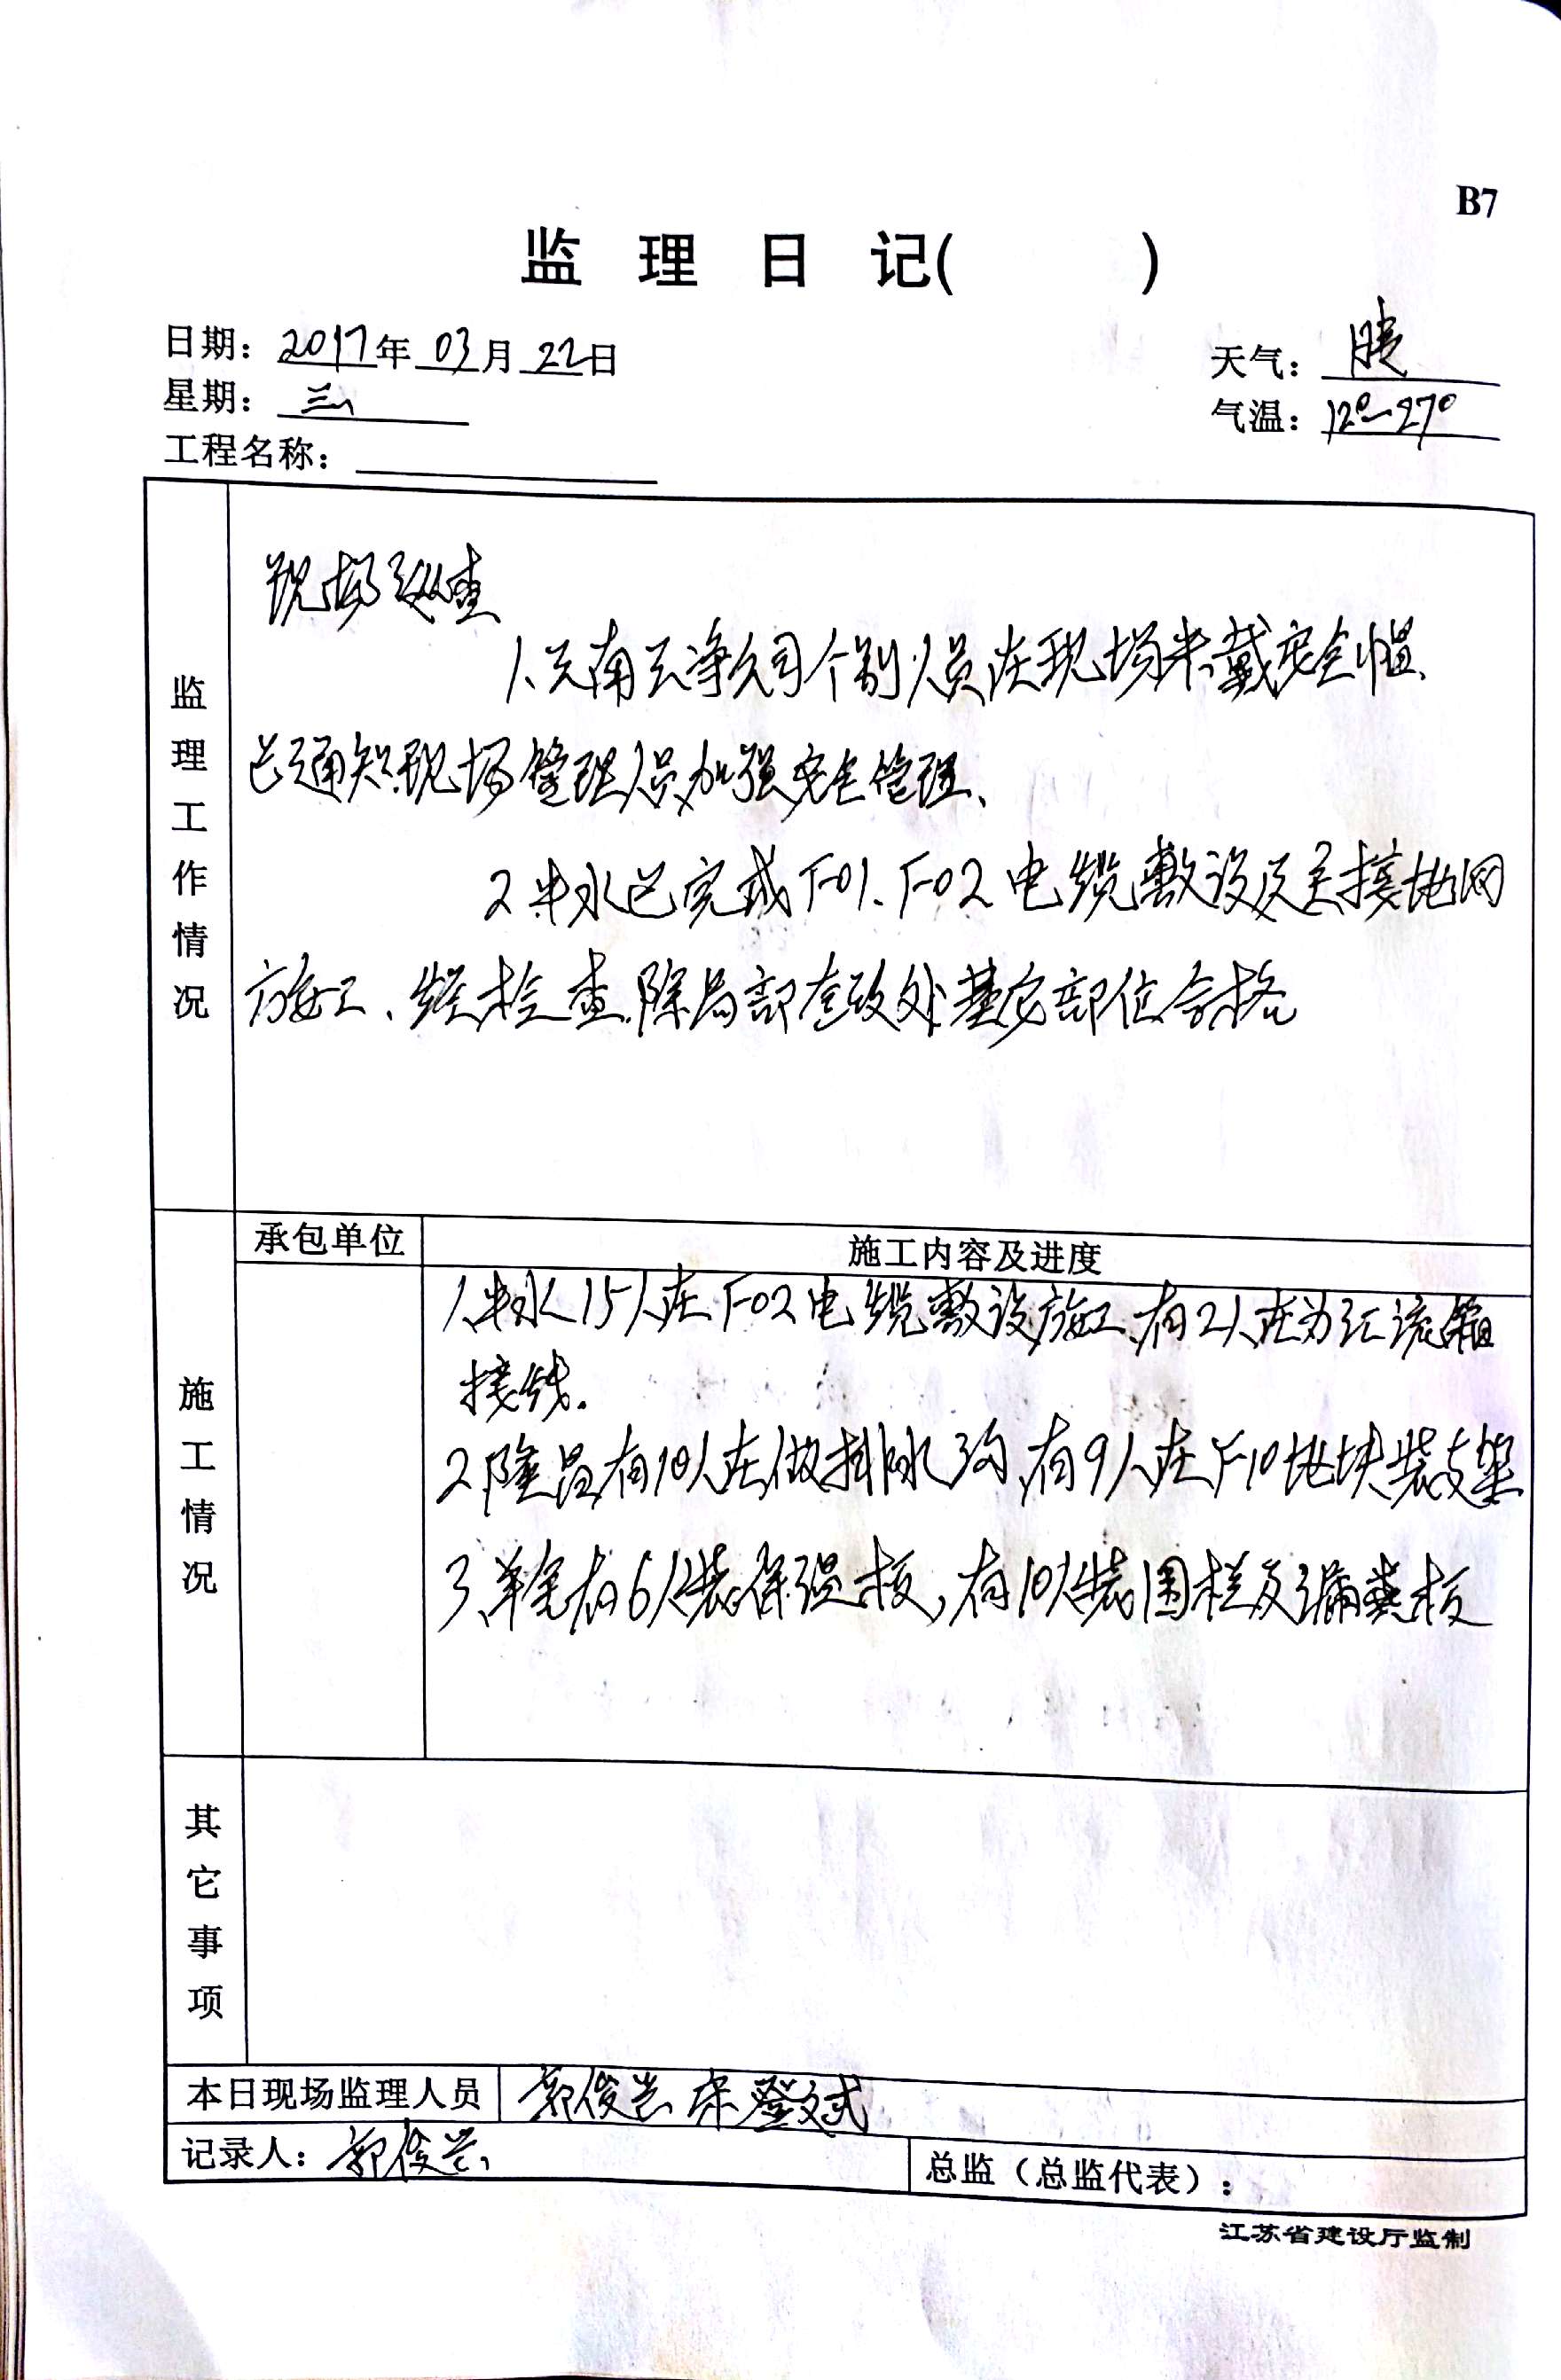 B7
监理日记( )
日期：2017年03月22日
天气：晴
星期：三
气温：12°-27°
工程名称：
监理工作情况
现场巡查
1、云南云净公司个别人员在现场未戴安全帽、
已通知现场管理人员加强安全管理、
2、中水已完成F01、F02电缆敷设及主接地网
施工、经检查、除局部整改处其它部位合格
承包单位
施工内容及进度
施工情况
1、中水15人在F02电缆敷设施工、有2人在为汇流箱
接线.
2、隆昌有10人在做排水沟,有9人在F10地块装支架
3、有6人装保温板，有10人装围栏及漏粪板
其它事项
本日现场监理人员 郭俊兴 宋登武
记录人：郭俊兴
总监（总监代表）：
江苏省建设厅监制